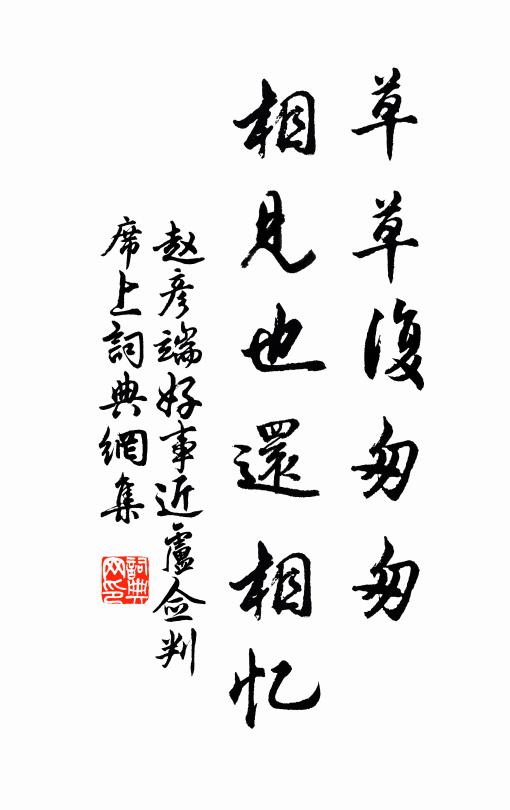 草草復匆匆
相見也還相忆
赵彦端好事近盧佥判
席上詞典網集
詞典
网印